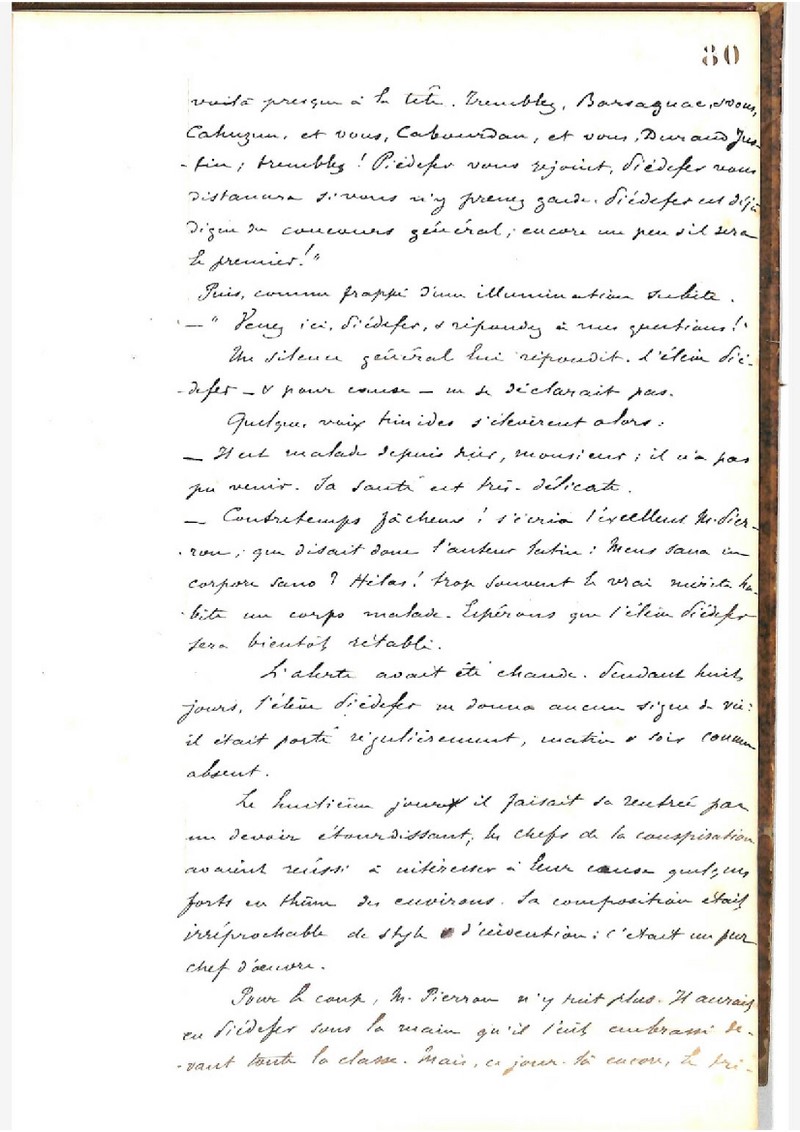 80
voilà presque à la tête. Tremblez, Barsagnac, & vous,
Cahuzun, et vous, Cabourdan, et vous, Durand Jus-
-tin ; tremblez ! Piédefer vous rejoint, Piédefer vous
distancera si vous n'y prenez garde. Piédefer est déjà
digne du concours général ; encore un peu & il sera
le premier ! "
Puis, comme frappé d'une illumination subite.
— " Venez ici, Piédefer, & répondez à mes questions ! "
Un silence général lui répondit. L'élève Pié-
-defer — & pour cause — ne se déclarait pas.
Quelques voix timides s'élevèrent alors :
— Il est malade depuis hier, monsieur ; il n'a pas
pu venir. Sa santé est très-délicate.
— Contretemps fâcheux ! s'écria l'excellent M. Pier-
-ron ; que disait donc l'auteur latin : Mens sana in
corpore sano ? Hélas ! trop souvent le vrai mérite ha-
-bite un corps malade. Espérons que l'élève Piédefer
sera bientôt rétabli.
L'alerte avait été chaude. Pendant huit
jours, l'élève Piédefer ne donna aucun signe de vie :
il était porté régulièrement, matin & soir comme
absent.
Le huitième jour il faisait sa rentrée par
un devoir étourdissant ; les chefs de la conspiration
avaient réussi à intéresser à leur cause quelques
forts en thème des environs. La composition était
irréprochable de style & d'invention : c'était un pur
chef d'œuvre.
Pour le coup, M. Pierron n'y tint plus. Il aurait
eu Piédefer sous la main qu'il l'eût embrassé de-
-vant toute la classe. Mais, ce jour-là encore, le Pié-